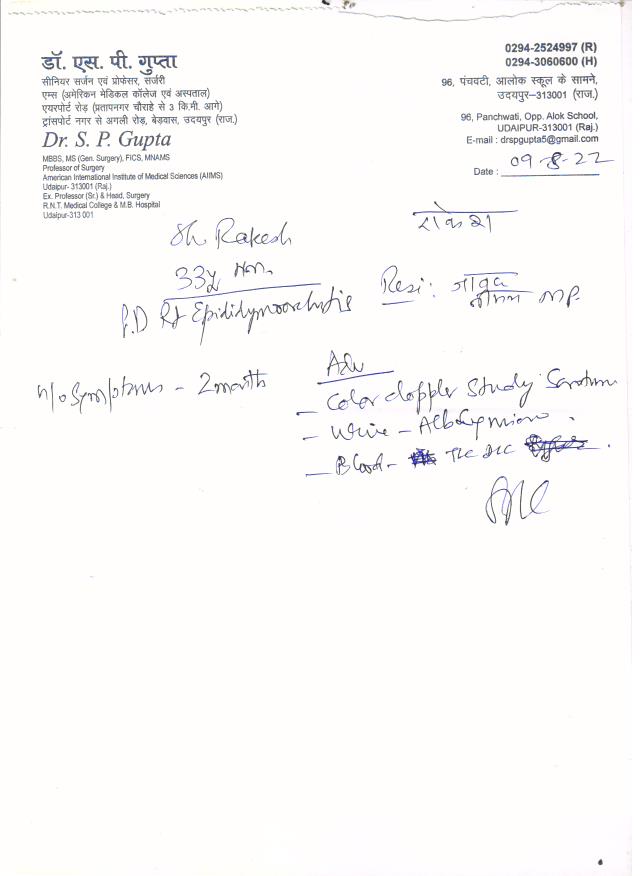 डॉ. एस. पी. गुप्ता
सीनियर सर्जन एवं प्रोफेसर, सर्जरी
एम्स (अमेरिकन मेडिकल कॉलेज एवं अस्पताल)
एयरपोर्ट रोड़ (प्रतापनगर चौराहे से 3 कि.मी. आगे)
ट्रांसपोर्ट नगर से अगली रोड़, बेड़वास, उदयपुर (राज.)
Dr. S. P. Gupta
MBBS, MS (Gen. Surgery), FICS, MNAMS
Professor of Surgery
American International Institute of Medical Sciences (AIIMS)
Udaipur- 313001 (Raj.)
Ex. Professor (Sr.) & Head, Surgery
R.N.T. Medical College & M.B. Hospital
Udaipur-313 001
0294-2524997 (R)
0294-3060600 (H)
96, पंचवटी, आलोक स्कूल के सामने,
उदयपुर–313001 (राज.)
96, Panchwati, Opp. Alok School,
UDAIPUR-313001 (Raj.)
E-mail : drspgupta5@gmail.com
Date : 09-8-22
Sh. Rakesh
राकेश
33y
P.D Rt Epididymoorchitis
Resi: जावद
नीमच MP.
H/o Symptoms - 2 month
Adv
- Color doppler Study Scrotum
- Urine - Alb Sug micro.
- Blood - TLC DLC